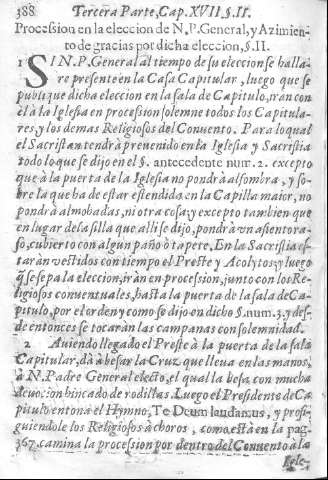 388 Tercera Parte, Cap. XVII §. II.
Procession en la eleccion de N.P. General, y Azimien-
to de gracias por dicha eleccion, §. II.
1 SI N.P. General al tiempo de su eleccion se halla-
re presente en la Casa Capitular, luego que se
publique dicha eleccion en la sala de Capitulo, iràn con
èl à la Iglesia en procession solemne todos los Capitula-
res, y los demas Religiosos del Convento. Para lo qual
el Sacristan tendrà prevenido en la Iglesia, y Sacristia
todo lo que se dijo en el §. antecedente num. 2. excepto
que à la puerta de la Iglesia no pondrà alfombra, y so-
bre la que ha de estar estendida en la Capilla maior, no
pondrà almohadas, ni otra cosa; y excepto tambien que
en lugar de la silla que alli se dijo, pondrà vn asiento ra-
so, cubierto con algun paño ò tapete, En la Sacristia es-
taràn vestidos con tiempo el Preste y Acolytos; y luego
q̃ se sepa la eleccion, iràn en procession, junto con los Re-
ligiosos conventuales, hasta la puerta de la sala de Ca-
pitulo, por el orden y como se dijo en dicho §. num. 3. y des-
de entonces se tocaràn las campanas con solemnidad.
2 Aviendo llegado el Preste à la puerta de la sala
Capitular, dà à besar la Cruz que lleva en las manos,
à N. Padre General electo, el qual la besa con mucha
devocion hincado de rodillas. Luego el Presidente de Ca-
pitulo entona el Hymno, Te Deum laudamus, y prosi-
guiendole los Religiosos à choros, como està en la pag.
367. camina la procession por dentro del Convento à la
Igle-